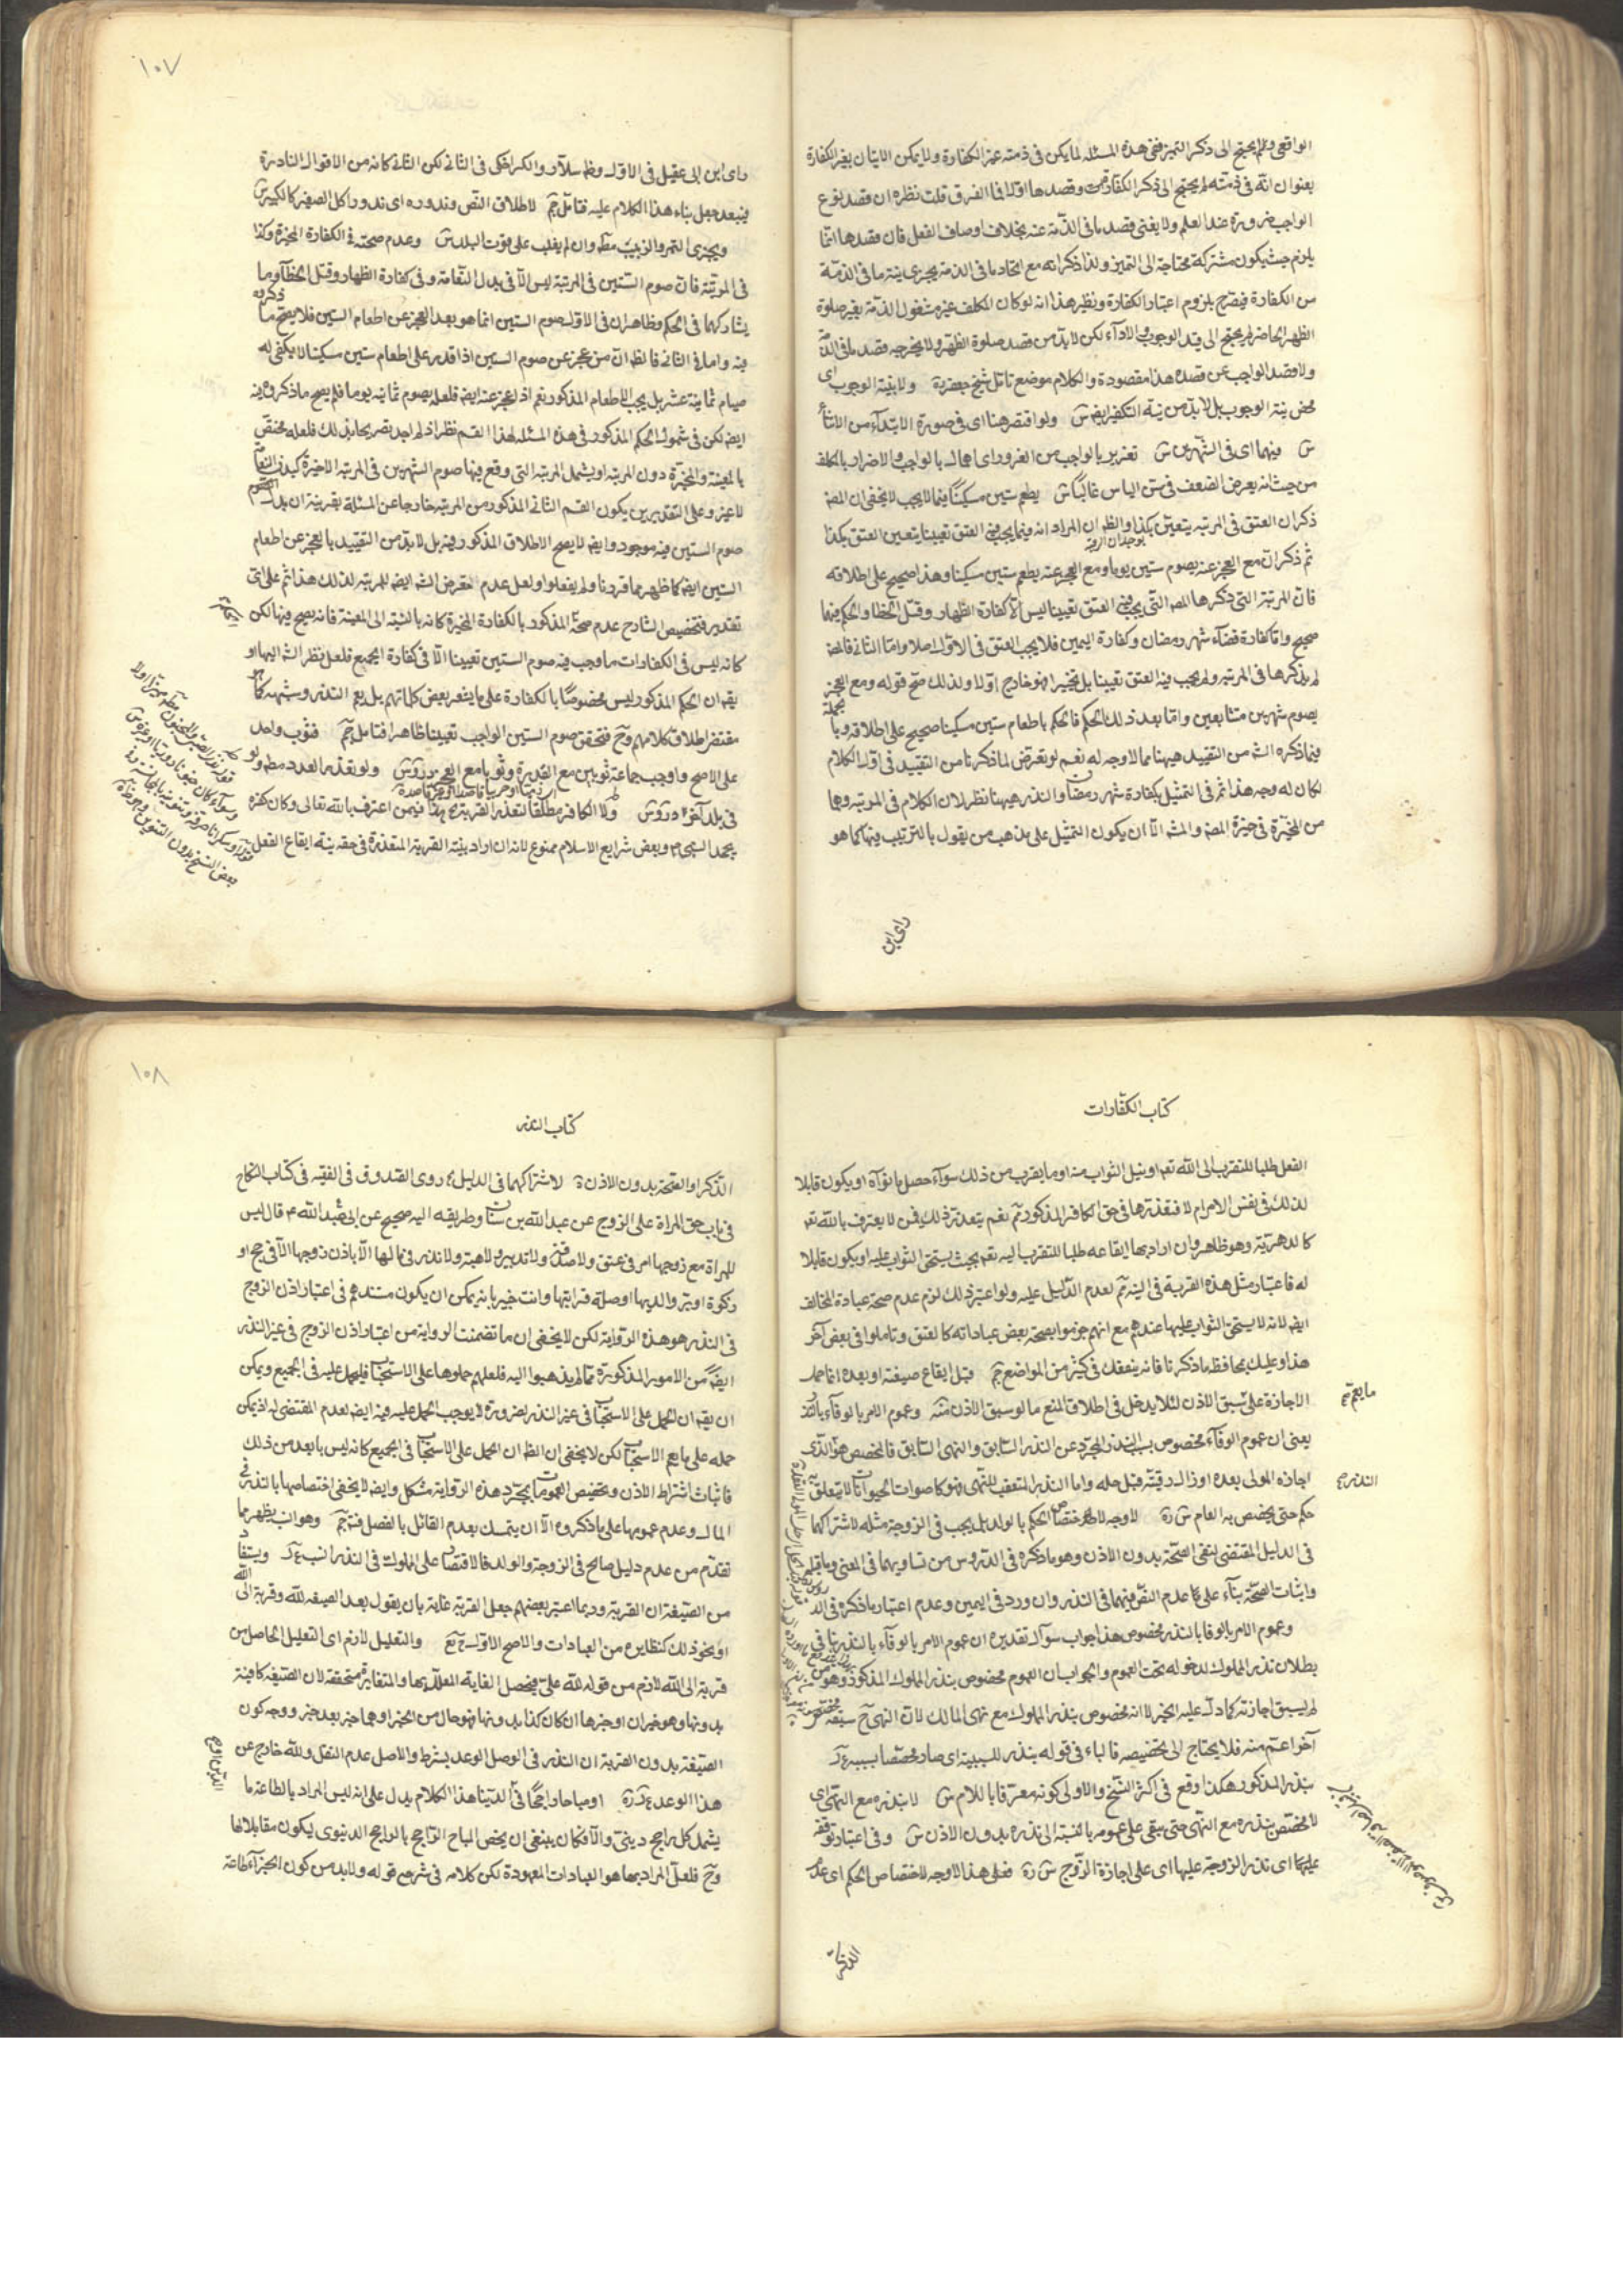 الواقعى ولم يحتج الى ذكر التميز ففى هذه المسئلة لما يكن فى ذمته غير الكفارة ولا يمكن الاتيان بغير الكفارة
بعنوان انه فى ذمته لم يحتج الى ذكر الكفارة وقصدها اولا فما الفرق قلت نظره ان قصد نوع
الواجب ضرورة عند العلم ولا يغنى قصد ما فى الذمة عنه بخلاف اوصاف الفعل فان قصدها انما
يلزم حيث يكون مشتركة محتاجة الى التميز ولذا ذكر انه مع اتحاد ما فى الذمة يجزى نية ما فى الذمة
من الكفارة فيصرح بلزوم اعتبار الكفارة ونظير هذا انه لو كان المكلف غير مشغول الذمة بغير صلوة
الظهر الحاضر لم يحتج الى قيد الوجوب والاداء لكن لا بد من قصد صلوة الظهر ولا يخرجه قصد ما فى الذمة
ولا قصد الواجب عن قصده هذا مقصوده والكلام موضع تامل شيخ جعفر ره ولا بنية الوجوب اى
محض نية الوجوب بل لا بد من نية التكفير ايض ش ولو اقتصر هنا اى فى صورة الابتداء من الاثناء
ش فيهما اى فى الشهرين ش تغرير بالواجب من الغرور اى اهمال بالواجب والاضرار بالمكلف
من حيث انه يعرض الضعف فى سن الياس غالبا ش يطعم ستين مسكينا فيما لا يجب لا يخفى ان المص
ذكر ان العتق فى المرتبة يتعين بكذا والظ ان المراد انه فيما يجب فيه العتق تعيينا يتعين العتق بكذا
بوجدان الرقبة
ثم ذكر ان مع العجز عنه يصوم ستين يوما ومع العجز عنه يطعم ستين مسكينا وهذا صحيح على اطلاقه
فان المرتبة التى ذكرها المص التى يجب فيه العتق تعيينا ليس الا كفارة الظهار وقتل الخطا والحكم فيهما
صحيح واما كفارة قضاء شهر رمضان وكفارة اليمين فلا يجب العتق فى الاول اصلا واما الثانى فالمص
لم يذكرها فى المرتبة ولم يجب فيه العتق تعيينا بل تخييرا فهو خارج اولا ولذلك صح قوله ومع العجز
يصوم شهرين متتابعين واما بعد ذلك الحكم فالحكم باطعام ستين مسكينا صحيح على اطلاقه وبالجملة
فيما ذكره الش من التقييد هيهنا مما لا وجه له نعم لو تعرض لما ذكرنا من التقييد فى اول الكلام
لكان له وجه هذا ثم فى التمثيل بكفارة شهر رمضان والنذر هيهنا نظر لان الكلام فى المرتبة وهما
من المخيرة فى خيرة المص والش الا ان يكون التمثيل على مذهب من يقول بالترتيب فيهما كما هو
راى ابن
١٠٧
راى ابن ابى عقيل فى الاول وظ سلار والكراجكى فى الثانى لكن الثانى كانه من الاقوال النادرة
فيبعد جعل بناء هذا الكلام عليه فتامل جم لاطلاق النص وندوره اى ندور اكل الصغير كالكبير ش
ويجزى التمر والزبيب مطلقا وان لم يغلب على قوت البلد ش وعدم صحته فى الكفارة المخيرة وكذا
فى المرتبة فان صوم الستين فى المرتبة ليس الا فى بدل النعامة وفى كفارة الظهار وقتل الخطاء وما
يشاركهما فى الحكم وظاهر ان فى الاول صوم الستين انما هو بعد العجز عن اطعام الستين فلا يصح ما ذكره
فيه واما فى الثانى فالظ ان من عجز عن صوم الستين اذا قدر على اطعام ستين مسكينا لا يكفى له
صيام ثمانية عشر بل يجب الاطعام المذكور نعم اذ لعجز عنه ايض فلعله يصوم ثمانية يوما فلم يصح ما ذكروه فيه
ايض لكن فى شمول الحكم المذكور فى هذه المسئلة لهذا القسم نظر اذ لم اجد تصريحا بذلك فلعله مختص
بالمعينة والمخيرة دون المرتبة او يشمل المرتبة التى وقع فيها صوم الشهرين فى المرتبة الاخيرة كبدل النعامة
لا غير وعلى التقديرين يكون القسم الثانى المذكور من المرتبة خارجا عن المسئلة بقرينة ان بدل الصوم
صوم الستين فيه موجود وايض لا يصح الاطلاق المذكور فيه بل لا بد من التقييد بالعجز عن اطعام
الستين ايض كما ظهر مما قررنا ولم يفعلوا ولعل عدم تعرض الش ايض للمرتبة لذلك هذا ثم على اى
تقدير فتخصيص الشارح عدم صحة المذكور بالكفارة المخيرة كانه بالنسبة الى المعينة فانه يصح فيها لكن
كانه ليس فى الكفارات ما وجب فيه صوم الستين تعيينا الا فى كفارة الجمع فلعل نظر الش اليها او
يقم ان الحكم المذكور ليس مخصوصا بالكفارة على ما يشعر بعض كلماتهم بل يعم النذر وشبهه كما هو
مقتضى اطلاق كلامهم وح فتحقق صوم الستين الواجب تعيينا ظاهر فتامل جم فثوب واحد
على الاصح واوجب جماعة ثوبين مع القدرة وثوبا مع العجز دروس ولو تعذر العدد مطلقا ولو
فى بلد آخر دروس ولا الكافر مطلقا لتعذر القربة هذا فيمن اعترف بالله تعالى وكان كفره
بجحد النبى ص وبعض شرايع الاسلام ممنوع لانه ان اراد بنية القربة المتعذرة فى حقه نية ايقاع الفعل
كتاب الكفارات
الفعل طلبا للتقرب الى الله تعم او نيل الثواب منه او ما يقرب من ذلك سواء حصل ما نواه او يكون قابلا
لذلك فى نفس الامر ام لا فتعذرها فى حق الكافر المذكور جم نعم يتعذر ذلك فى من لا يعترف بالله تع
كالدهرية وهو ظاهر وان اراد بها ايقاعه طلبا للتقرب اليه تعم بحيث يستحق الثواب عليه او يكون قابلا
له فاعتبار مثل هذه القربة فى النية جم لعدم الدليل عليه ولو اعتبر ذلك لزم عدم صحة عبادة المخالف
ايض لانه لا يستحق الثواب عليها عندهم مع انهم جزموا بصحة بعض عباداته كالعتق وتاملوا فى بعض آخر
هذا وعليك بمحافظة ما ذكرنا فانه ينفعك فى كثير من المواضع جم قبل ايقاع صيغته او بعده انما حمل
الاجازة على سبق الاذن لئلا يدخل فى اطلاق المنع ما لو سبق الاذن منه وعموم الامر بالوفاء بالنذر
يعنى ان عموم الوفاء مخصوص بسبب النذر المجرد عن النذر السابق والنهى السابق فالمخصص هو الذى
اجازه المولى بعده او زال رقيته قبل حله واما النذر المتعقب للنهى فهو كاصوات الحيوانات لا يتعلق به
حكم حتى يخصص به العام ش ره لا وجه لاختصاص الحكم بالولد بل يجب فى الزوجة مثله لاشتراكهما
فى الدليل المقتضى لنفى الصحة بدون الاذن وهو ما ذكره فى الدروس من تساويهما فى المعنى
واثبات الصحة بناء على عدم النص فيهما فى النذر وان ورد فى اليمين وعدم اعتبار ما ذكره فى الد
وعموم الامر بالوفا بالنذر مخصوص هذا جواب سوال تقديره ان عموم الامر بالوفاء بالنذر ينافى
بطلان نذر المملوك لدخوله تحت العموم والجواب ان العموم مخصوص بنذر المملوك المذكور وهو من
لم يسبق اجازته كما دل عليه الخبر لا انه مخصوص بنذر المملوك مع نهى المالك لان النهى ح
آخر اعم منه فلا يحتاج الى تخصيصه فالباء فى قوله بنذر للسببية اى صار مخصصا بسببه ع ل
بنذر المذكور هكذا وقع فى اكثر النسخ والاولى كونه معرفا باللام ش لا بنذره مع النهى اى
لا مختص بنذره مع النهى حتى يبقى على عمومه بالنسبة الى نذره بدون الاذن ش وفى اعتبار توقفه
عليهما اى نذر الزوجة عليها اى على اجازة الزوج ش ره فعلى هذا لا وجه لاختصاص الحكم اى عدم
النذر ع
١٠٨
كتاب النذر
الذكر او الصحة بدون الاذن ة لاشتراكهما فى الدليل روى الصدوق فى الفقيه فى كتاب النكاح
فى باب حق المراة على الزوج عن عبد الله بن سنان وطريقه اليه صحيح عن ابى عبد الله ع قال ليس
للمراة مع زوجها امر فى عتق ولا صدقة ولا تدبير ولا هبة ولا نذر فى مالها الا باذن زوجها الا فى حج او
زكوة او بر والديها او صلة قرابتها وانت خبير بانه يمكن ان يكون مستندهم فى اعتبار اذن الزوج
فى النذر هو هذه الرواية لكن لا يخفى ان ما تضمنت الرواية من اعتبار اذن الزوج فى غير النذر
ايض من الامور المذكورة مما لم يذهبوا اليه فلعلهم حملوها على الاستحباب فليحمل عليه فى الجميع ويمكن
ان يقم ان الحمل على الاستحباب فى غير النذر بضرورة لا يوجب الحمل عليه فيه ايض لعدم المقتضى له اذ يمكن
حمله على ما يعم الاستحباب لكن لا يخفى ان الظ ان الحمل على الاستحباب فى الجميع كانه ليس بابعد من ذلك
فاثبات اشتراط الاذن وتخصيص العمومات بمجرد هذه الرواية مشكل وايض لا يخفى اختصاصها بالنذر فى
المال وعدم عمومها على ما ذكروه الا ان يتمسك بعدم القائل بالفصل فتد جم وهو انب يظهر مما
تقدم من عدم دليل صالح فى الزوجة والولد فالاقتصار على المملوك فى النذر انسب ع ل ويستفاد
من الصيغة ان القربة وربما اعتبر بعضهم جعل القربة غاية بان يقول بعد الصيغة لله وقربة الى الله
او نحو ذلك كنظايره من العبادات والاصح الاول ح ع والتعليل لازم اى التعليل الحاصل من
قربة الى الله لازم من قوله لله على فيحصل الغاية المعلل بها والمتغايرة متحققة لان الصيغة كافية
بدونها وهو خبران او خبرها ان كان كذا بدونها فهو حال من الخبر او هما خبر بعد خبر ووجه كون
الصيغة بدون القربة ان النذر فى الاصل الوعد بشرط والاصل عدم النقل ولله خارج عن
هذا الوعد ع ل ره او مباحا راجحا فى الدنيا هذا الكلام يدل على انه ليس المراد بالطاعة ما
يشمل كل راجح دينى والا فكان ينبغى ان يخص المباح الراجح بالراجح الدنيوى ليكون مقابلا لها
وح فلعل المراد بها هو العبادات المعهودة لكن كلامه فى شرح قوله ولا بد من كون الجزاء طاعة